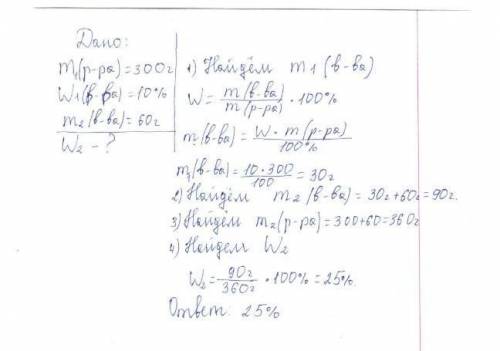 Дано:
m₁(р-ра)=300г
W₁(в-ва)=10%
m₂(в-ва)=60г
W₂ - ?
1) Найдём m₁(в-ва)
W = m(в-ва) / m(р-ра) · 100%
m₁(в-ва) = W · m(р-ра) / 100%
m₁(в-ва) = 10·300 / 100 = 30г
2) Найдём m₂(в-ва) = 30г+60г=90г.
3) Найдём m₂(р-ра)=300+60=360г
4) Найдем W₂
W₂ = 90г / 360г · 100% = 25%.
Ответ: 25%